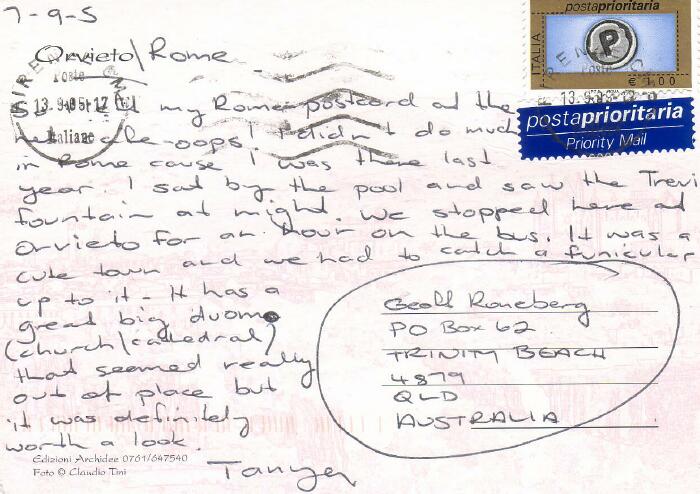 7-9-5
Orvieto\Rome
my Rome postcard at the
- oops! I didn't do much
in Rome cause I was there last
year. I sat by the pool and saw the Trevi
fountain at night. We stopped here at
Orvieto for an hour on the bus. It was a
cute town and we had to catch a funicular
up to it - It has a
great big duomo
(church/cathedral)
that seemed really
out of place but
it was definitely
worth a look.
Tanya
Geoff
PO Box 62
TRINITY BEACH
4879
QLD
AUSTRALIA
Edizioni Archidee 0761/647540
Foto © Claudio Tini
postaprioritaria
ITALIA
P
€ 1,00
postaprioritaria
Priority Mail
Poste
13.9.05-12
Italiane
Poste